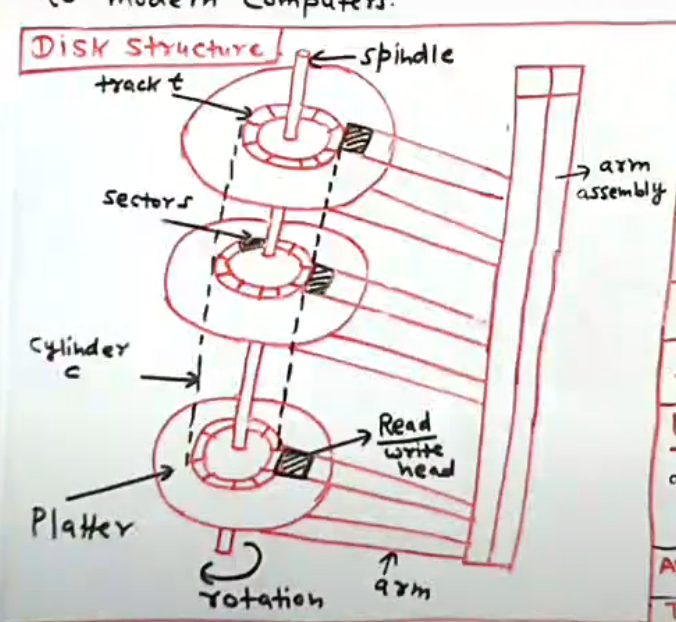 to modern computers.
Disk Structure
spindle
track t
arm
assembly
sectors
cylinder
c
Read
write
head
Platter
rotation
arm